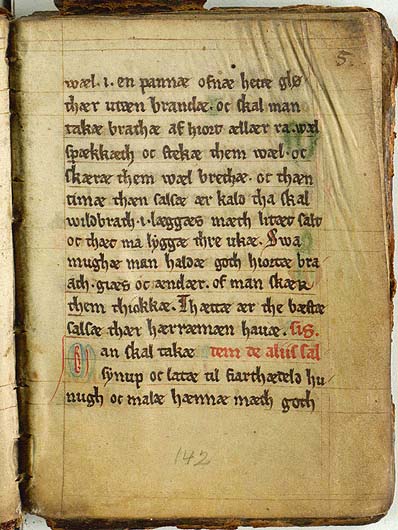 5.
wæl. i. en pannæ ofnæ hette glø
thær uten brandæ. oc skal man
takæ brathæ af hiort ællær ra. wæl
spækkæth oc stekæ them wæl. oc
skæræ them wæl brethæ. oc thæn
timæ thæn salsæ ær kald tha skal
wildbrath. i. læggæs mæth litæt salt
oc thæt ma lyggæ thre ukæ. Swa
mughæ man haldæ goth hiortæ bra
ath. giæs oc ændær. of man skær
them thiokkæ. Thættæ ær the bæstæ
salsæ thær hærræmæn hauæ. sig.
an skal takæ tem de aliis sal
synup oc latæ til fiarthædeld hu
nugh oc malæ hænnæ mæth goth
142